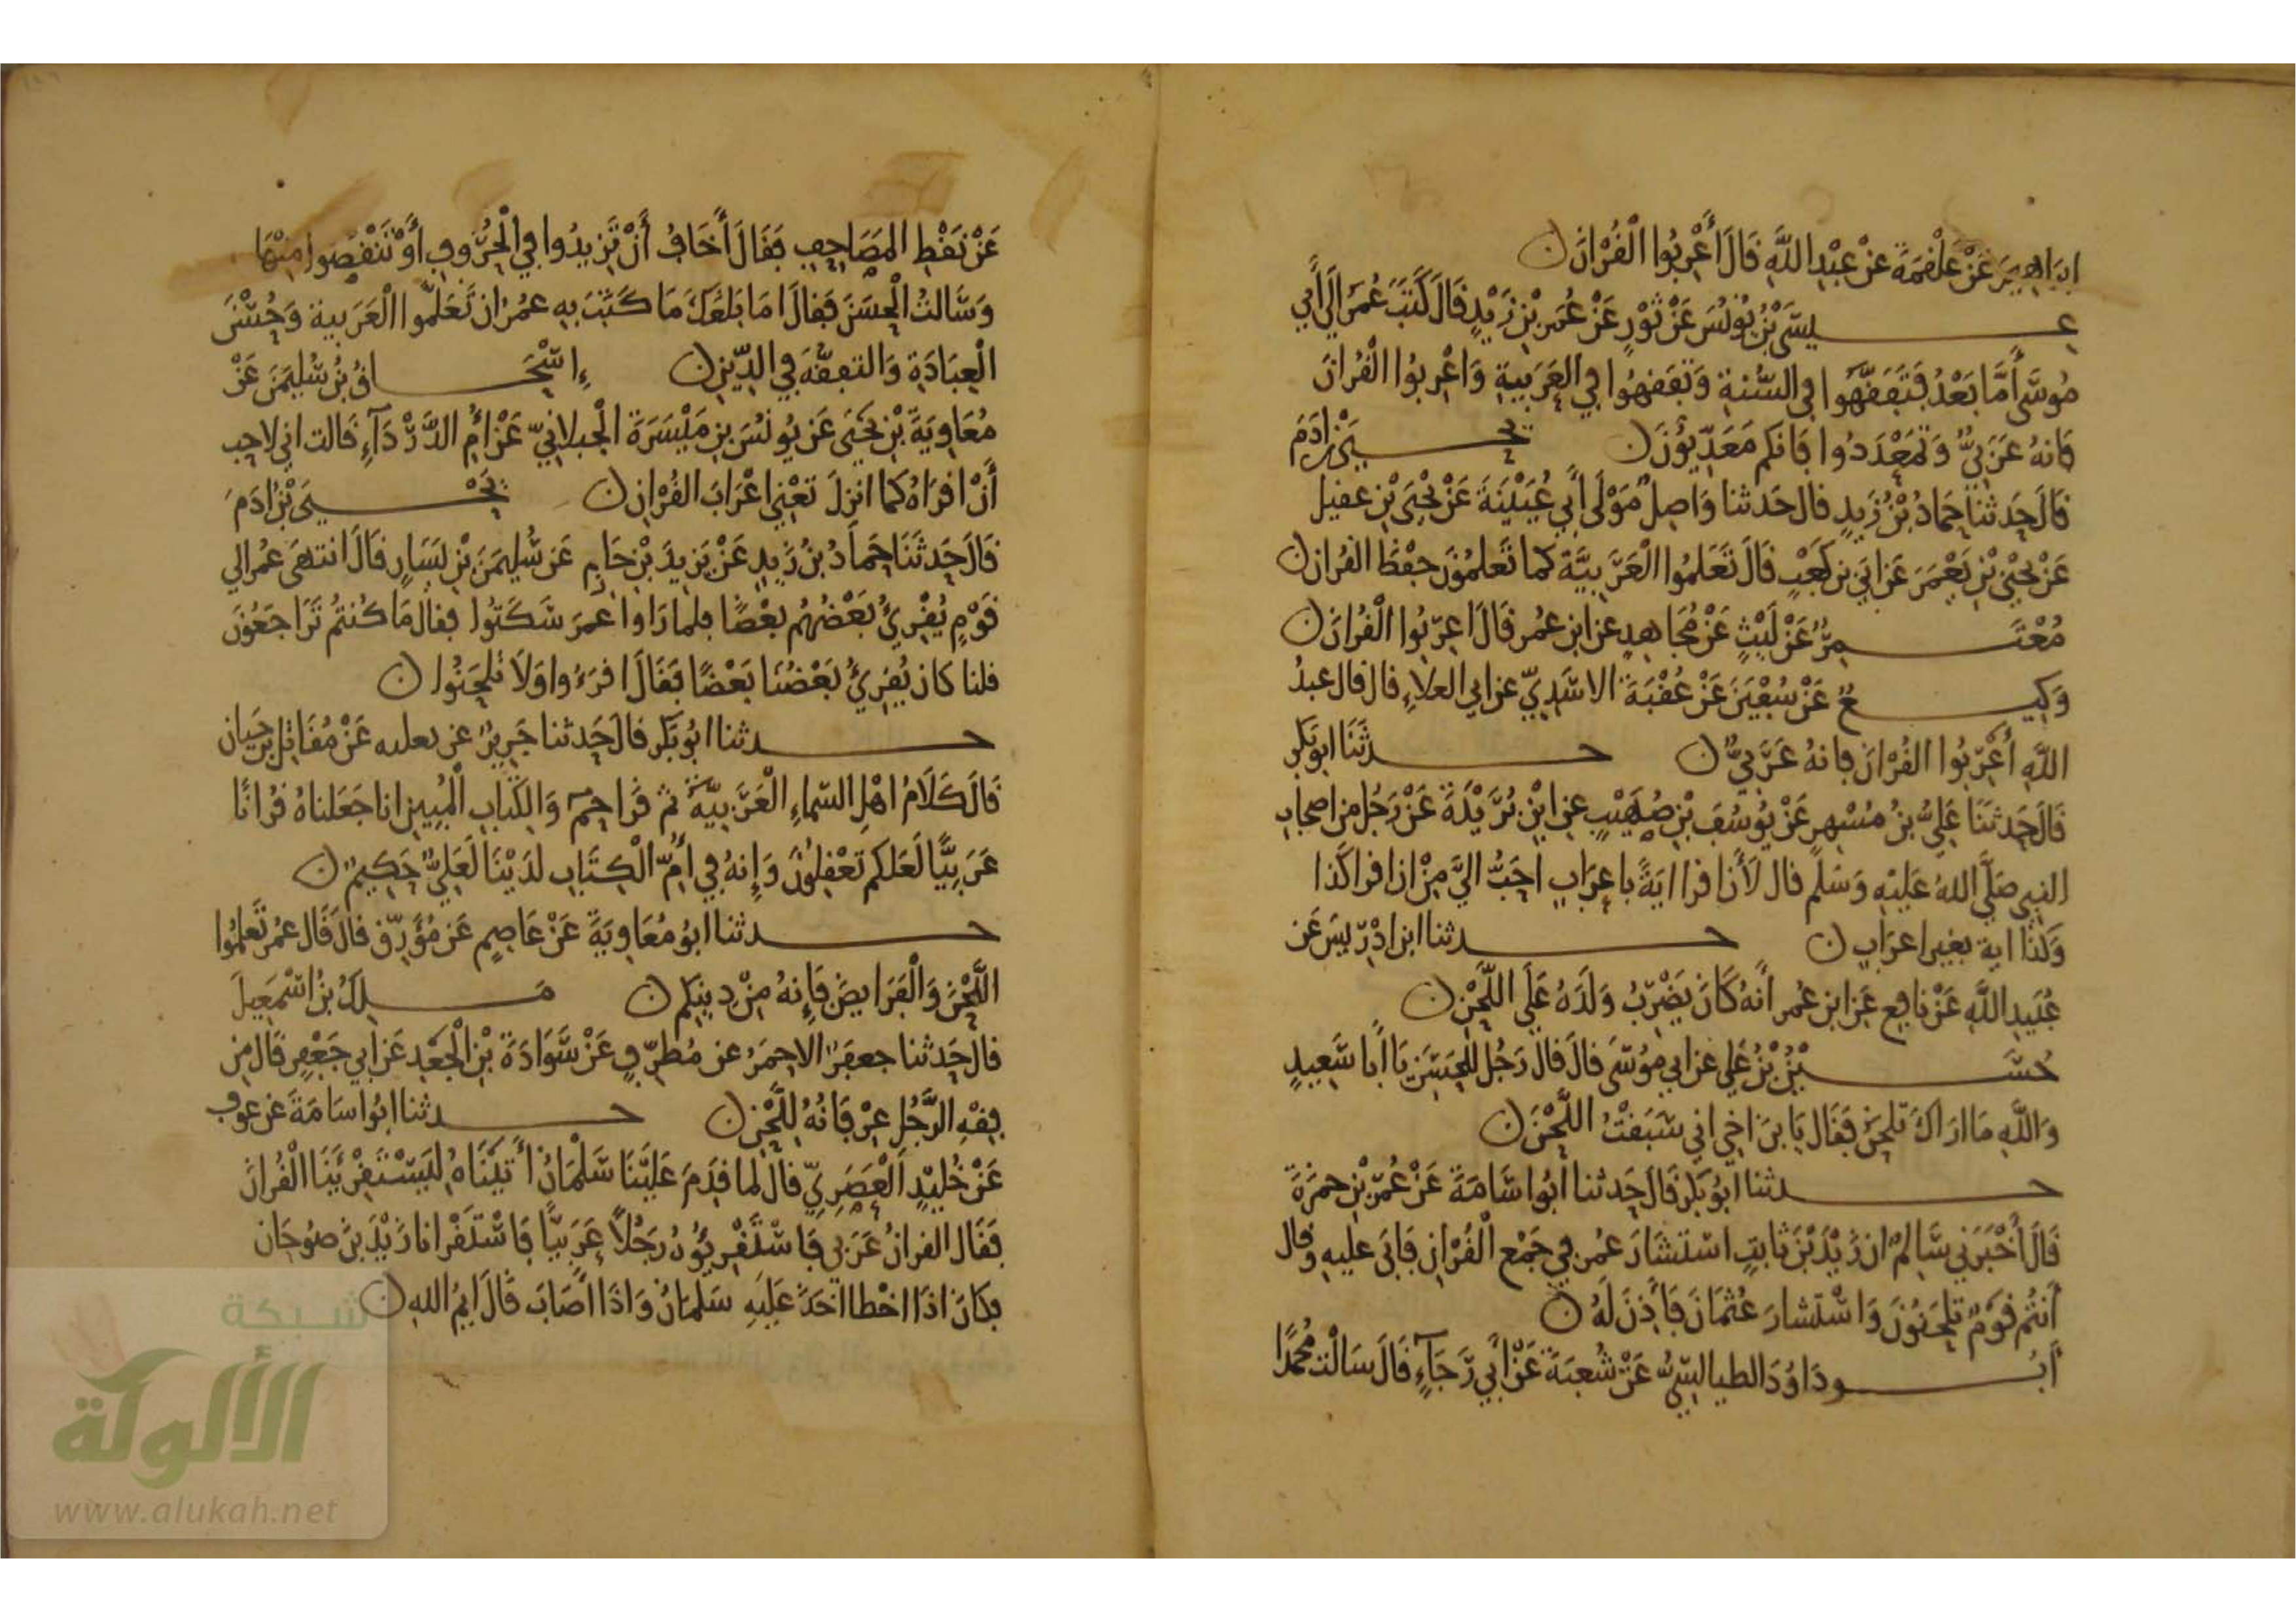 ابراهيم عَنْ عَلْقَمَةَ عَنْ عَبْدِ اللَّهِ قَالَ أَعْرِبُوا الْقُرْانَ
عيسَى بْنُ يُونُسَ عَنْ ثَوْرٍ عَنْ عُمَرَ بْنِ زَيْدٍ قَالَ كَتَبَ عُمَرُ الَى أَبِي
مُوسَى أَمَّا بَعْدُ فَتَفَقَّهُوا فِي السُّنةِ وَتَفَقهُوا فِي العَرَبِيةِ وَاعْرِبُوا الْقُرانَ
فَانهُ عَرَبيٌّ وَتَمَعْدَدُوا فَانكم مَعَدِّيُّونَ يَحيَى بْنُ ادَمَ
قَالَ حَدثنا حَمادُ بْنُ زَيدٍ قال حَدثنا وَاصِلٌ مَوْلَى أَبِي عُيَيْنَةَ عَنْ يَحْيَى بْنِ عقيل
عَنْ يَحْيَى بْنِ يَعْمَرَ عَن ابَيّ بن كَعْبٍ قَالَ تَعَلمُوا الْعَرَبِيَّة كما تَعَلمُونَ حِفْظَ القُران
مُعْتَمِرٌ عَنْ لَيْثٍ عَنْ مُجَاهِدٍ عن ابنِ عُمر قَالَ اعْرِبُوا الْقُرانَ
وَكِيعٌ عَنْ سُفْيَنَ عَنْ عُقْبَةَ الاسَدِيّ عن ابي العلاءِ قال قال عبدُ
اللَّهِ أَعْرِبُوا القُرْانَ فانهُ عَرَبيٌّ حدثَنَا ابو بَكر
قَالَ حَدثَنَا عَلِيُّ بنُ مُسْهِرٍ عَنْ يُوسُفَ بْنِ صُهَيْبٍ عنِ ابْنِ بُرَيْدَةَ عَنْ رَجُلٍ من اصحابِ
النبي صَلَّى اللهُ عَلَيْهِ وَسَلم قال لَأَن اقرا ايَةً باعرَابٍ احَبُّ اليَّ مِنْ ان اقرا كَذا
وَكَذا اية بغير اعرَابٍ حدثنا ابن ادْرِيسَ عَن
عُبَيدِ اللَّهِ عَنْ نافِعٍ عَنِ ابن عُمر أَنهُ كَانَ يَضْرِبُ وَلَدَهُ عَلَى اللَّحْنِ
حُسَيْنُ بْنُ عَلي عن ابي مُوسَى قال قالَ رَجُل للحَسَنِ يَا أَبا سَعِيدٍ
وَاللَّهِ مَا ارَاكَ تَلحَن فَقَال يَا بنَ اخي اني سَبَقْتُ اللَّحْنَ
حدثنا ابُو بَكر قَالَ حَدثنا ابُوا سَامَةَ عَنْ عُمَرَ بْنِ حمزَةَ
قَالَ أَخْبَرَنِي سَالمٌ ان زَيْدَ بْنَ ثَابِتٍ اسْتَشَارَ عُمر فِي جَمْعِ الْقُرْانِ فَابَى عليهِ وقال
أَنتُم قَوْمٌ تلحَنُونَ وَاسْتَشارَ عُثمَانَ فَأَذِنَ لَهُ
أَبُو دَاوُدَ الطيالسيُّ عَنْ شُعبَةَ عَنْ أَبي رَجَآءٍ قَالَ سَالْتُ مُحمَّدًا
عَنْ نَقْطِ المَصَاحِفِ فَقَالَ أَخَافُ أَنْ تَزِيدُوا فِي الْحُرُوفِ أَوْ تَنْقُصُوا مِنْهَا
وَسَالتُ الْحسَنَ فَقالَ امَا بَلَغَكَ مَا كَتَبَ بِهِ عمرُ ان تَعَلَّمُوا الْعَرَبية وَحُسْنَ
الْعِبَادَةِ وَالتفقُّهَ فِي الدِّيْنِ إِسْحَاقُ بْنُ سُلَيمَنَ عَنْ
مُعَاوِيَةَ بْنِ يَحْيَى عَن يُونُسَ بنِ مَيْسَرَةَ الْجبلانِيّ عَنْ أُم الدَّرْدَآءِ قَالت اني لاحِب
أَنْ اقرَاهُ كما انزلَ تَعْني اعْرَابَ القُرْانِ يَحْيَى بْنُ ادَمَ
قَالَ حَدثَنَا حَمادُ بنُ زَيدٍ عَنْ يَزِيدَ بْنِ حَازِمٍ عَن سُلَيمَنَ بْنِ يَسَارٍ قَالَ انتهَى عُمر الي
قَوْمٍ يُقْرِئُ بَعْضُهُم بَعْضًا فلما رَاوا عمَرَ سَكَتُوا فقال مَا كُنتُم تَرَاجَعُونَ
قلنا كان يُقرِئُ بَعْضُنَا بَعْضًا فَقَالَ اقرَءُوا وَلَا تَلحَنُوا
حدثنا ابُو بَكر قالَ حَدثنا جَرِيرٌ عن ثعلبه عَنْ مُقَاتِلِ بن حَيان
قَالَ كَلَامُ اهْلِ السّماءِ الْعَرَبِيَّةُ ثم قَرَا حمٓ وَالكِتَابِ الْمُبِينِ انا جَعَلناهُ قُرْانًا
عَرَبِيًّا لَعَلكم تَعْقِلُونَ وَإنهُ فِي أُمِّ الْكِتَابِ لَدَيْنَا لَعَلِيٌّ حَكِيمٌ
حدثنا ابُو مُعَاوِيَةَ عَنْ عَاصِمٍ عَن مُوَرِّقٍ قالَ قَال عُمر تَعلمُوا
اللَّحْنَ وَالْفَرَايضَ فَإِنهُ مِنْ دِينِكم مَلِكُ بْنُ اسْمَعِيلَ
قال حَدثنا جعفَرٌ الاحمَرُ عن مُطَرِّفٍ عَنْ سَوَادَةَ بْنِ الْجَعْدِ عَن أَبِي جَعْفَرٍ قَالَ مِن
فِقْهِ الرَّجُلِ عِرْفَانُهُ اللَّحْنَ حدثنا ابُوا سَامَةَ عَن عوف
عَنْ خُلَيْدٍ الْعَصَرِيّ قَالَ لما قَدِمَ عَلَيْنَا سَلْمَانُ أَتَيْنَاهُ لِيَسْتَقْرِئَنَا الْقُرانَ
فَقَال القرانُ عَرَبي فَاسْتَقْرِئُوهُ رَجُلًا عَرَبيًّا فَاسْتَقْرانا زَيْدَ بنَ صُوحَان
فكَانَ اذَا اخْطا اخَذَ عَلَيهِ سَلمَانُ وَاذَا اصَابَ قَالَ ايمُ اللهِ
شبكة
الألوكة
www.alukah.net